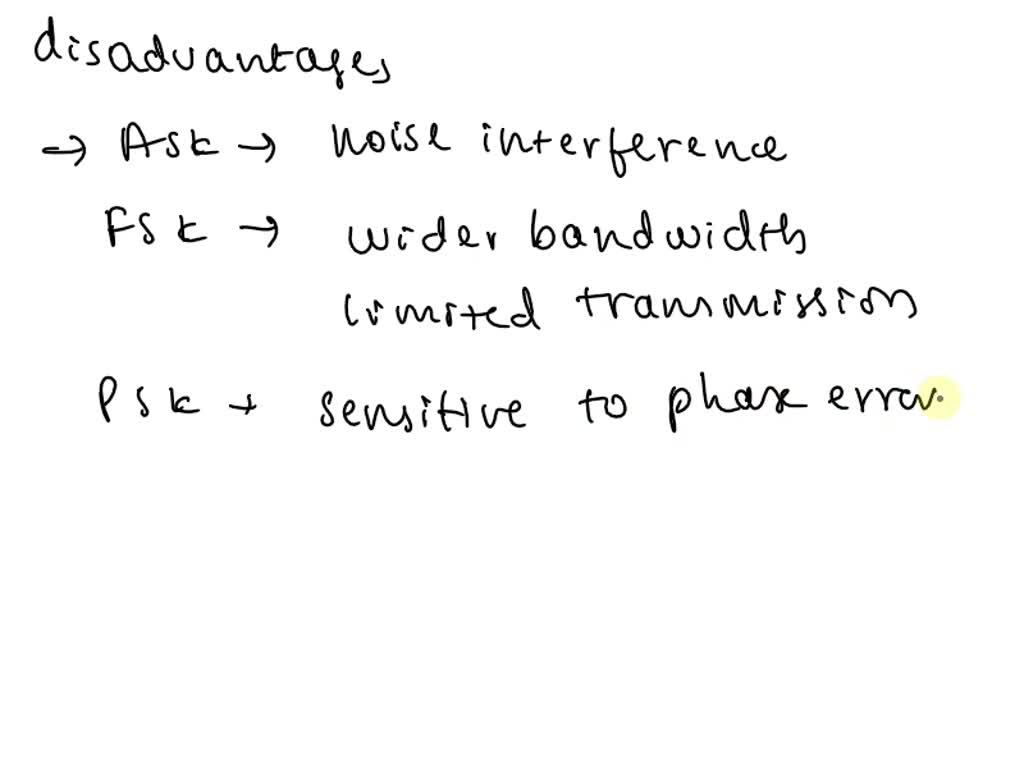 disadvantages
→ Ask → noise interference
Fsk → wider bandwidth
limited transmission
Psk → sensitive to phase error